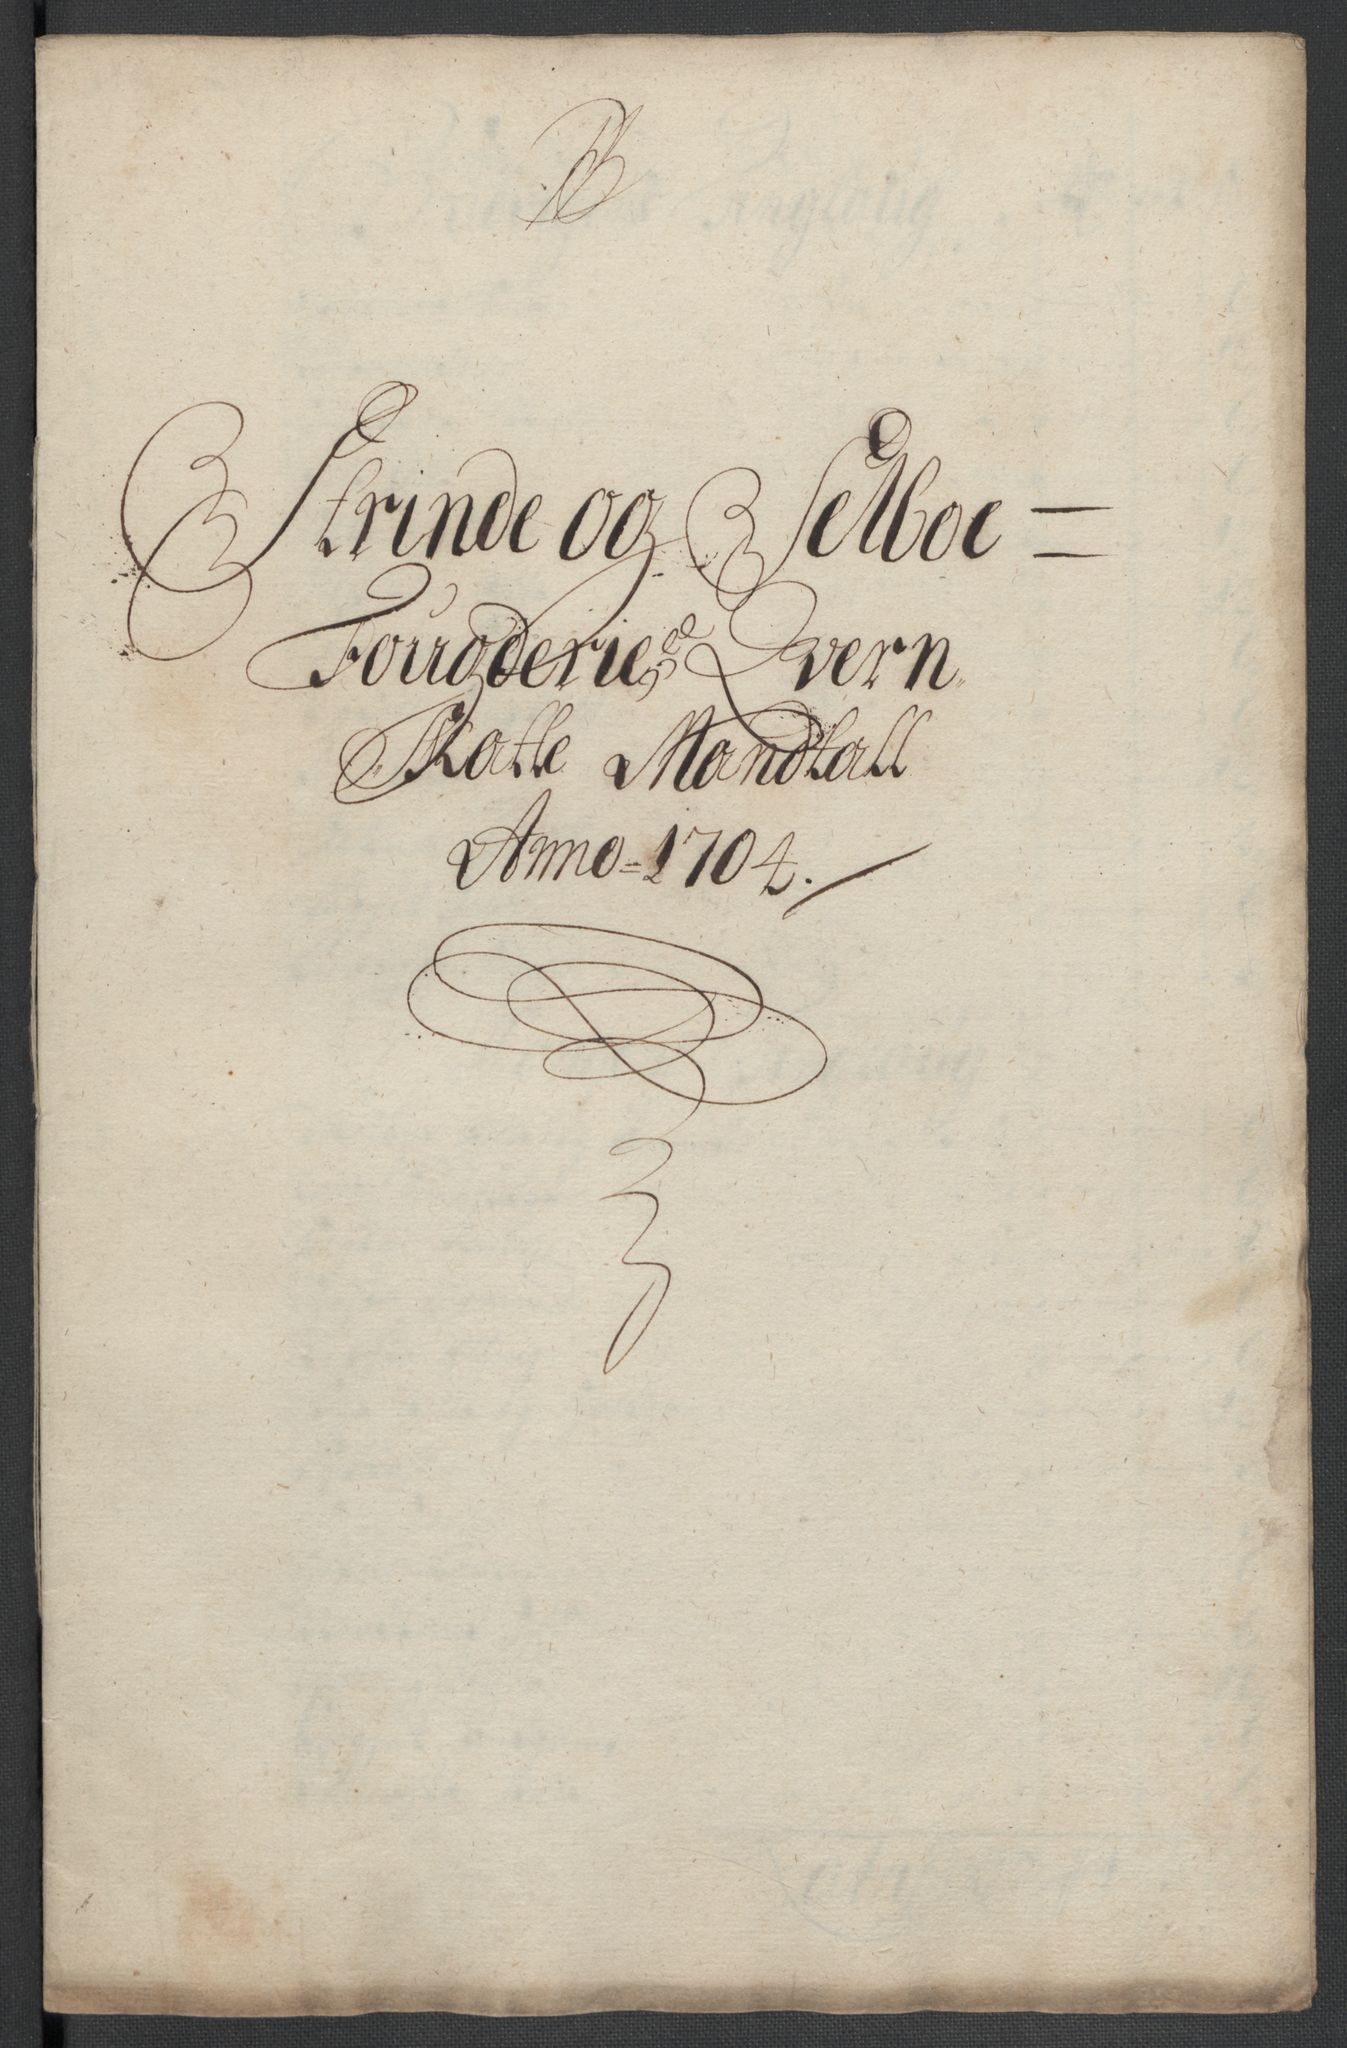 Strinde og Selboe =
Fougderies Qvern
Skatte Mandtall
Anno = 1704.